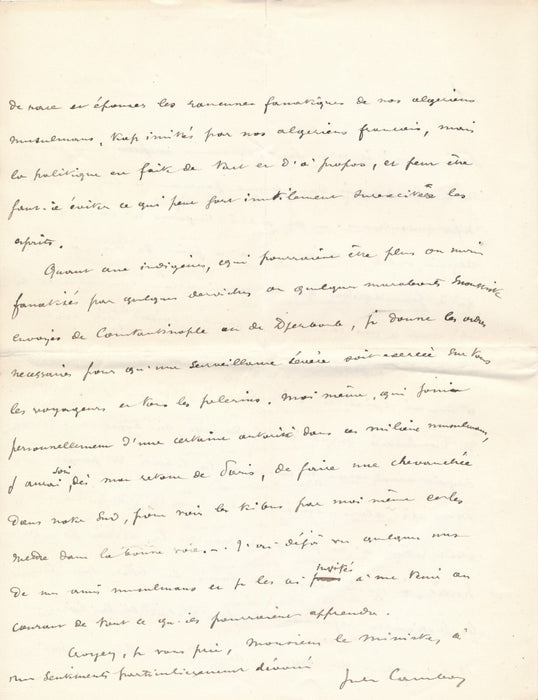 de race et épouser les rancunes fanatiques de nos algériens
musulmans, trop imités par nos algériens français, mais
la politique est faite de tact et d'à propos, et peut être
faut-il éviter ce qui peut fort inutilement surexciter les
esprits.
Quant aux indigènes, qui pourraient être plus ou moins
fanatisés par quelques derviches ou quelques marabouts Snoussis
envoyés de Constantinople ou de Djerboub, je donne les ordres
nécessaires pour qu'une surveillance sévère soit exercée sur tous
les voyageurs et tous les pèlerins. Moi même, qui jouis
personnellement d'une certaine autorité dans ces milieux musulmans,
j'aurai soin, dès mon retour de Paris, de faire une chevauchée
dans notre Sud, pour voir les tribus par moi même et les
mettre dans la bonne voie. - J'ai déjà vu quelques uns
de mes amis musulmans et je les ai invités à me tenir au
courant de tout ce qu'ils pourraient apprendre.
Croyez, je vous prie, Monsieur le Ministre, à
mes sentiments particulièrement dévoués
Jules Cambon